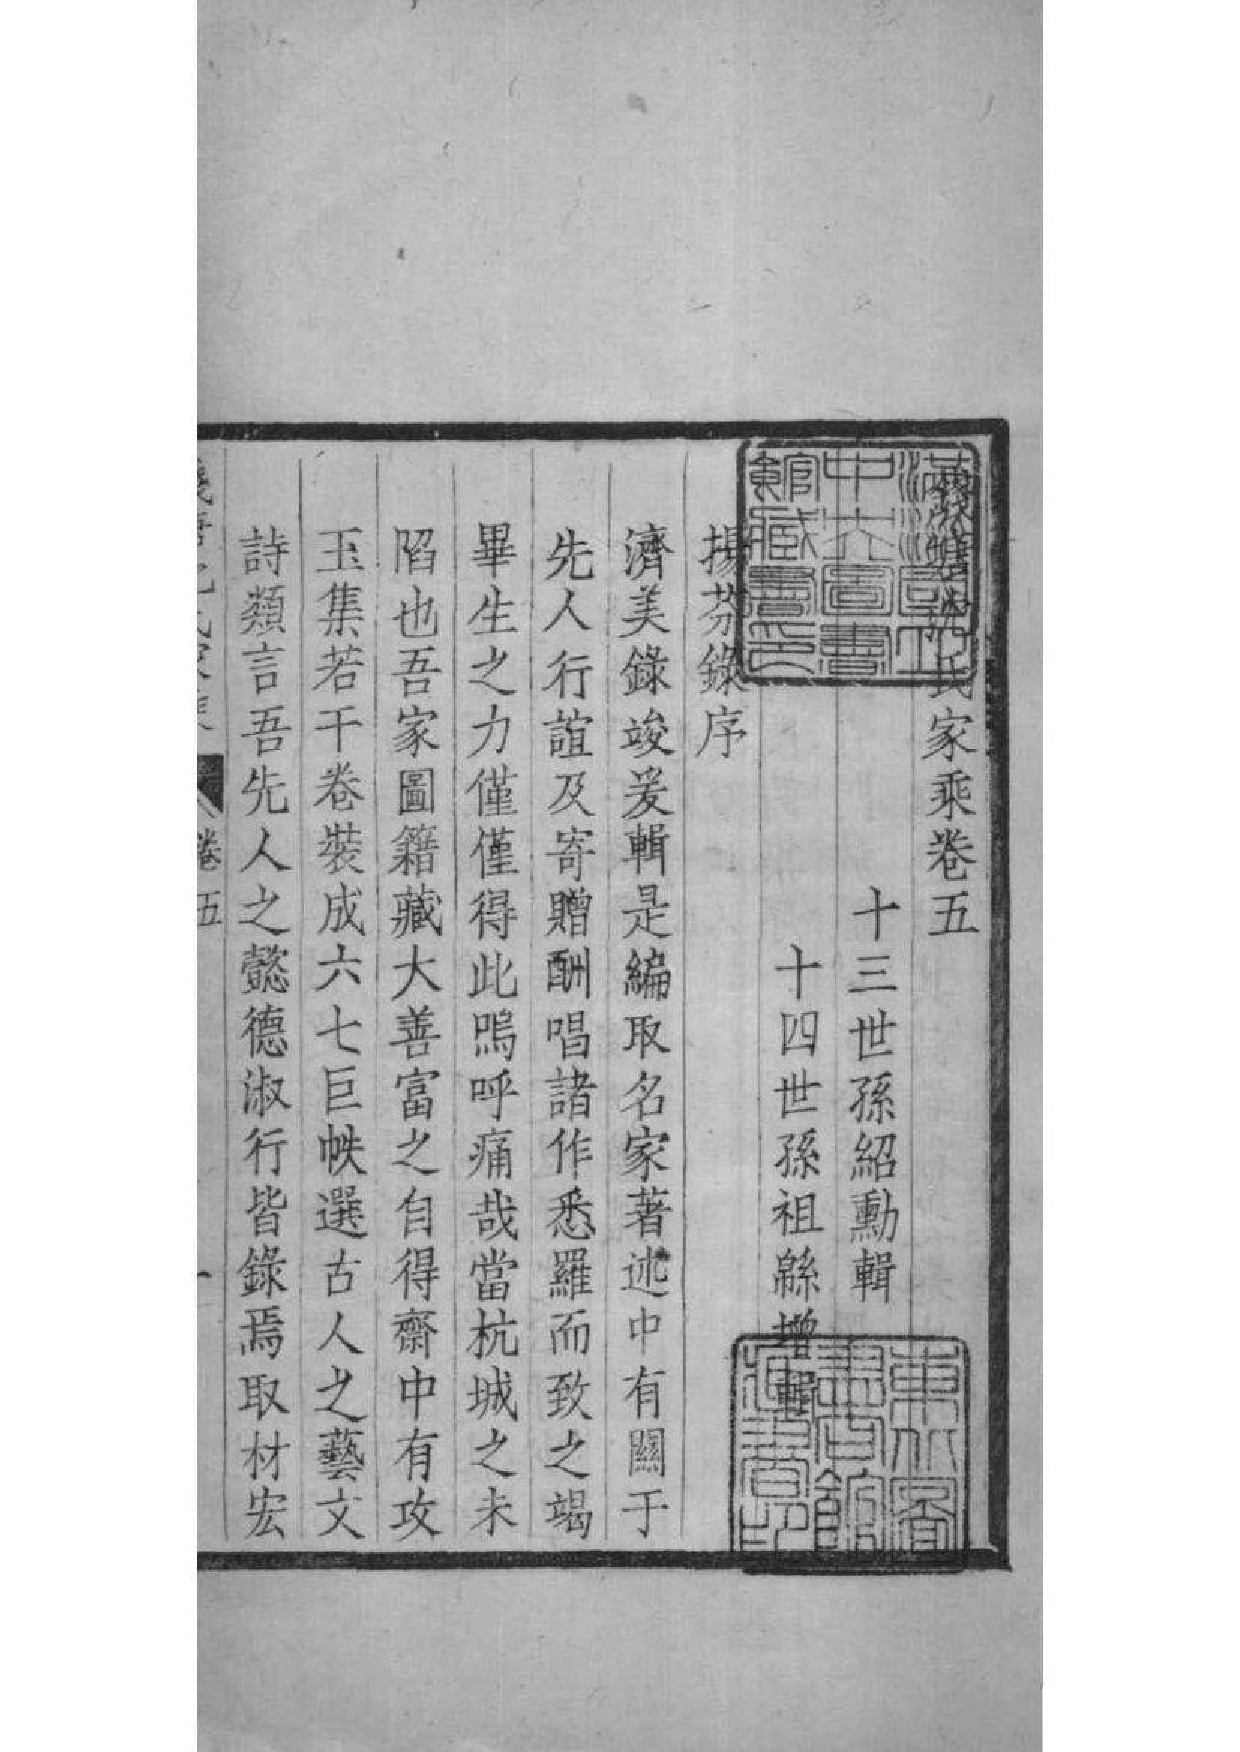 錢塘沈氏家乘卷五
十三世孫紹勳輯
十四世孫祖緜增輯
揚芬錄序
濟美錄竣爰輯是編取名家著述中有關于
先人行誼及寄贈酬唱諸作悉羅而致之竭
畢生之力僅僅得此嗚呼痛哉當杭城之未
陷也吾家圖籍藏大善富之自得齋中有攻
玉集若干卷裝成六七巨帙選古人之藝文
詩類言吾先人之懿德淑行皆錄焉取材宏
卷五
一
滿
中央圖書
館藏書印
東北圖
書館